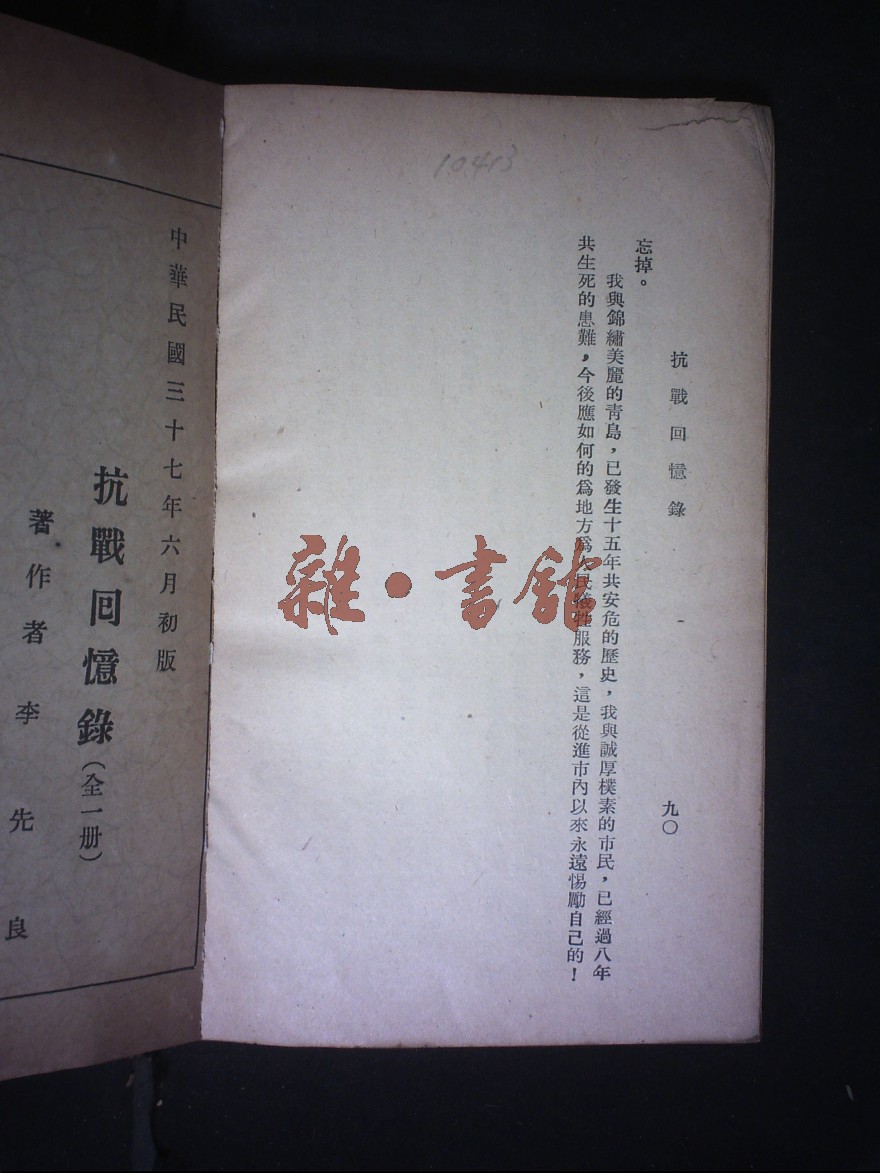 10.453
抗戰回憶錄
九〇
忘掉。
我與錦繡美麗的青島，已發生十五年共安危的歷史，我與誠厚樸素的市民，已經過八年
共生死的患難，今後應如何的為地方為人民犧牲服務，這是從進市內以來永遠惕勵自己的！
雜·書館
中華民國三十七年六月初版
抗戰回憶錄（全一冊）
著作者李先良